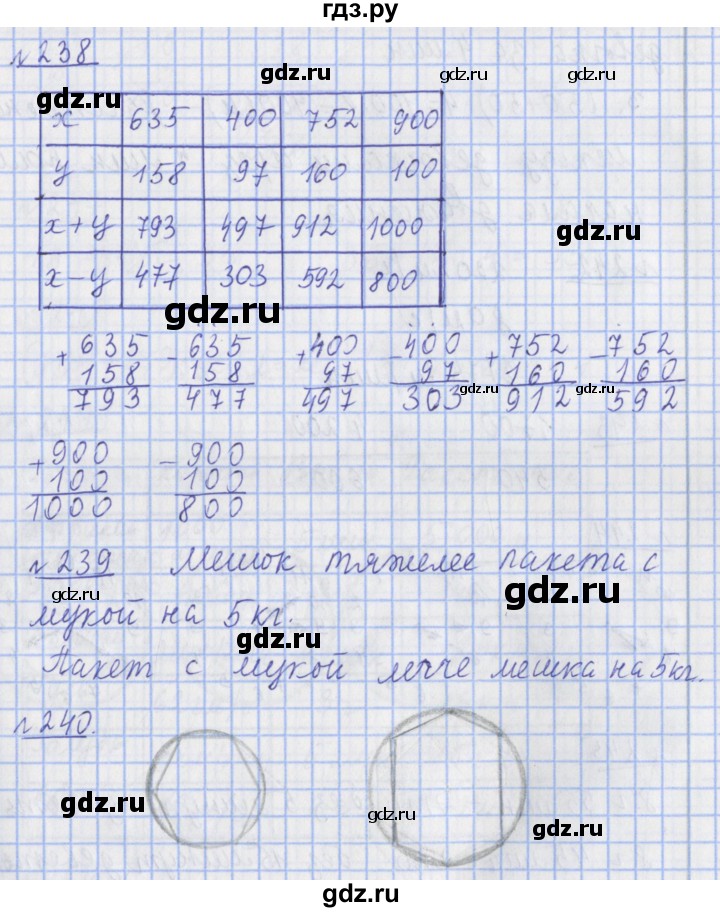 гдз.ру
№238
gdz.ru gdz.ru gdz.ru
gdz.ru
x 635 400 752 900
y 158 97 160 100
x+y 793 497 912 1000
gdz.ru
x-y 477 303 592 800
gdz.ru
+635 -635 +400 -400 +752 -752
158 158 97 97 160 160
793 477 497 303 912 592
gdz.ru gdz.ru
+900 -900
100 100
1000 800
gdz.ru
№239 Мешок тяжелее пакета с
gdz.ru
мукой на 5 кг.
gdz.ru
Пакет с мукой легче мешка на 5 кг.
№240.
gdz.ru
gdz.ru
gdz.ru
gdz.ru